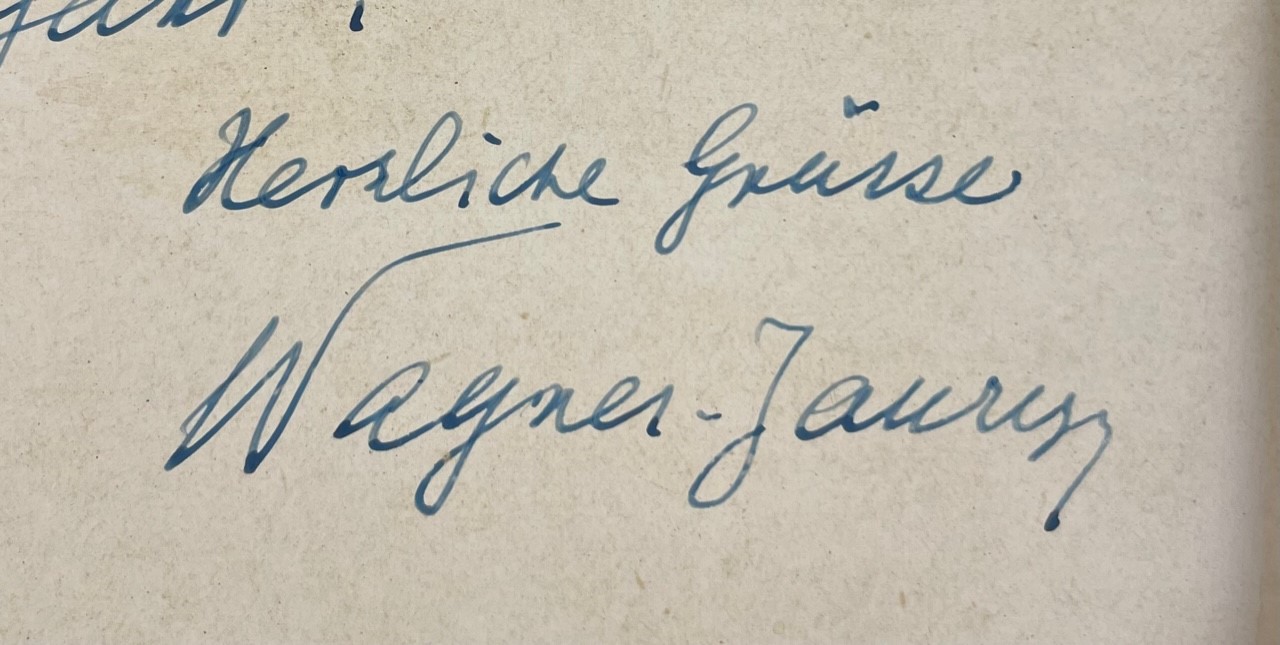 Herzliche Grüsse
Wagner-Jauregg